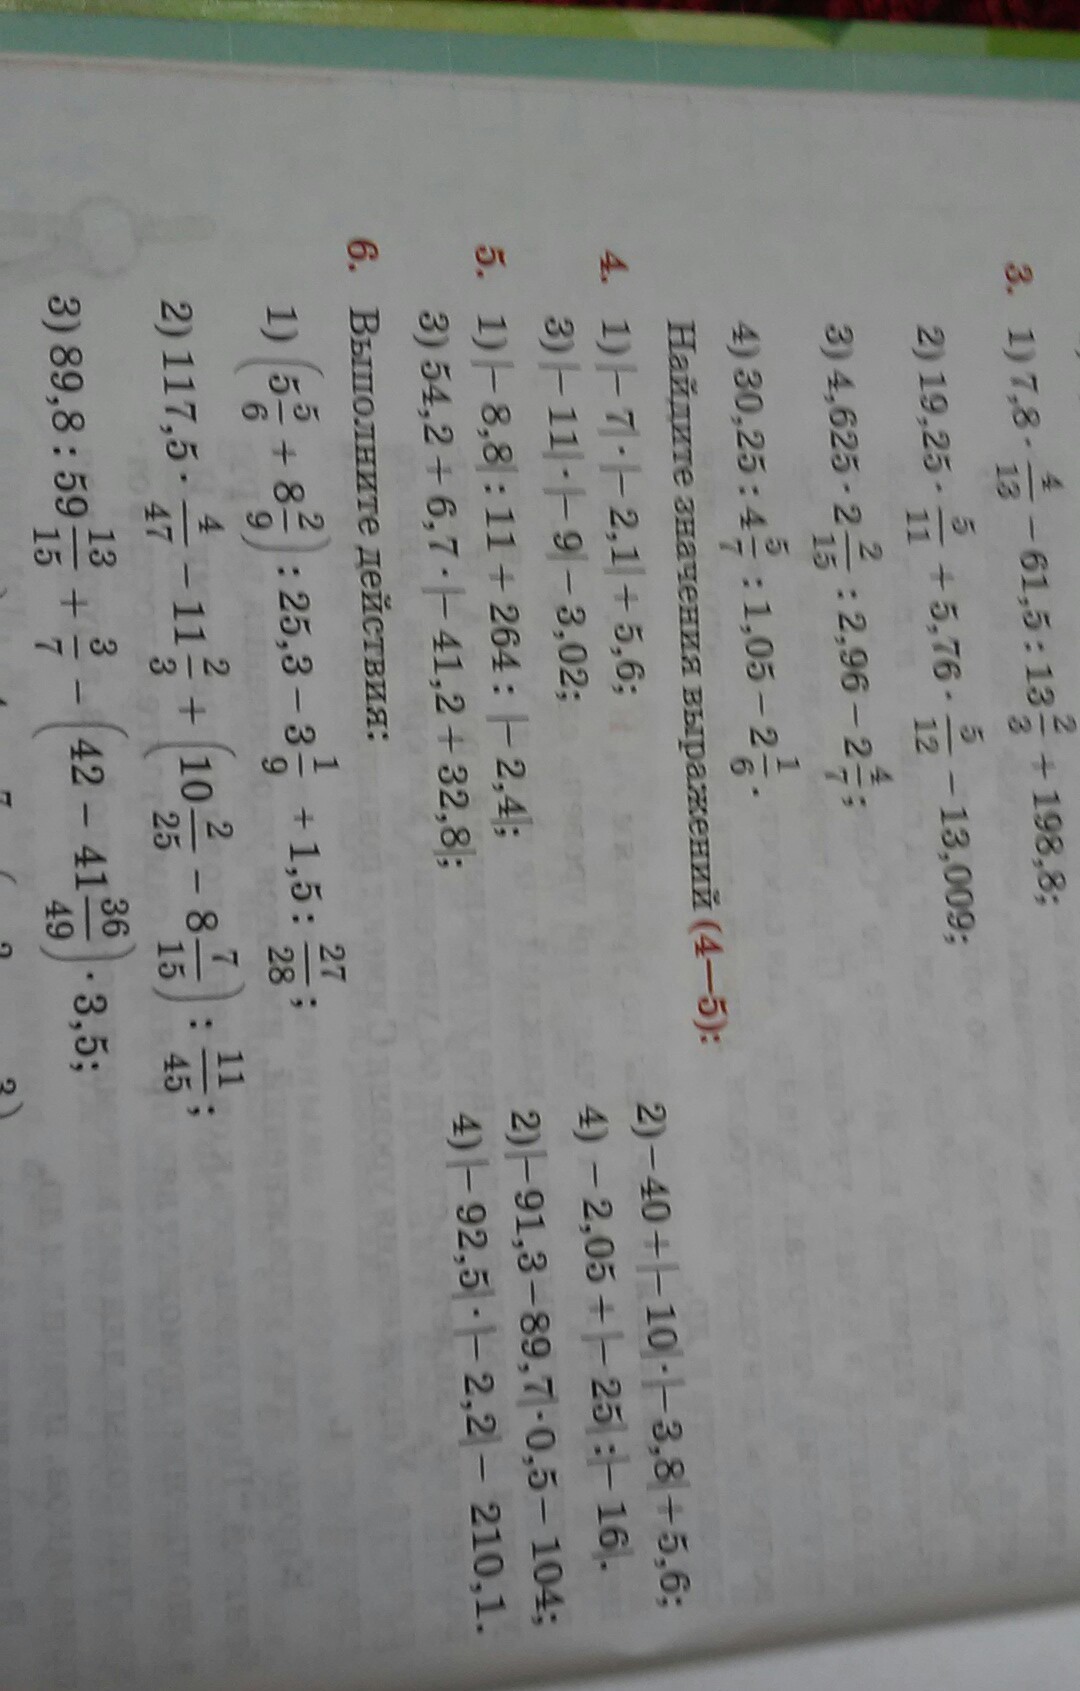 3. 1) 7,8 · 4/13 − 61,5 : 13 2/3 + 198,8;
2) 19,25 · 5/11 + 5,76 · 5/12 − 13,009;
3) 4,625 · 2 2/15 : 2,96 − 2 4/7;
4) 30,25 : 4 5/7 : 1,05 − 2 1/6.
Найдите значения выражений (4—5):
4. 1) |−7| · |−2,1| + 5,6; 2) −40 + |−10| · |−3,8| + 5,6;
3) |−11| · |−9| − 3,02; 4) −2,05 + |−25| : |−16|.
5. 1) |−8,8| : 11 + 264 : |−2,4|; 2) |−91,3 − 89,7| · 0,5 − 104;
3) 54,2 + 6,7 · |−41,2 + 32,8|; 4) |−92,5| · |−2,2| − 210,1.
6. Выполните действия:
1) (5 5/6 + 8 2/9) : 25,3 − 3 1/9 + 1,5 : 27/28;
2) 117,5 · 4/47 − 11 2/3 + (10 2/25 − 8 7/15) : 11/45;
3) 89,8 : 59 13/15 + 3/7 − (42 − 41 36/49) · 3,5;